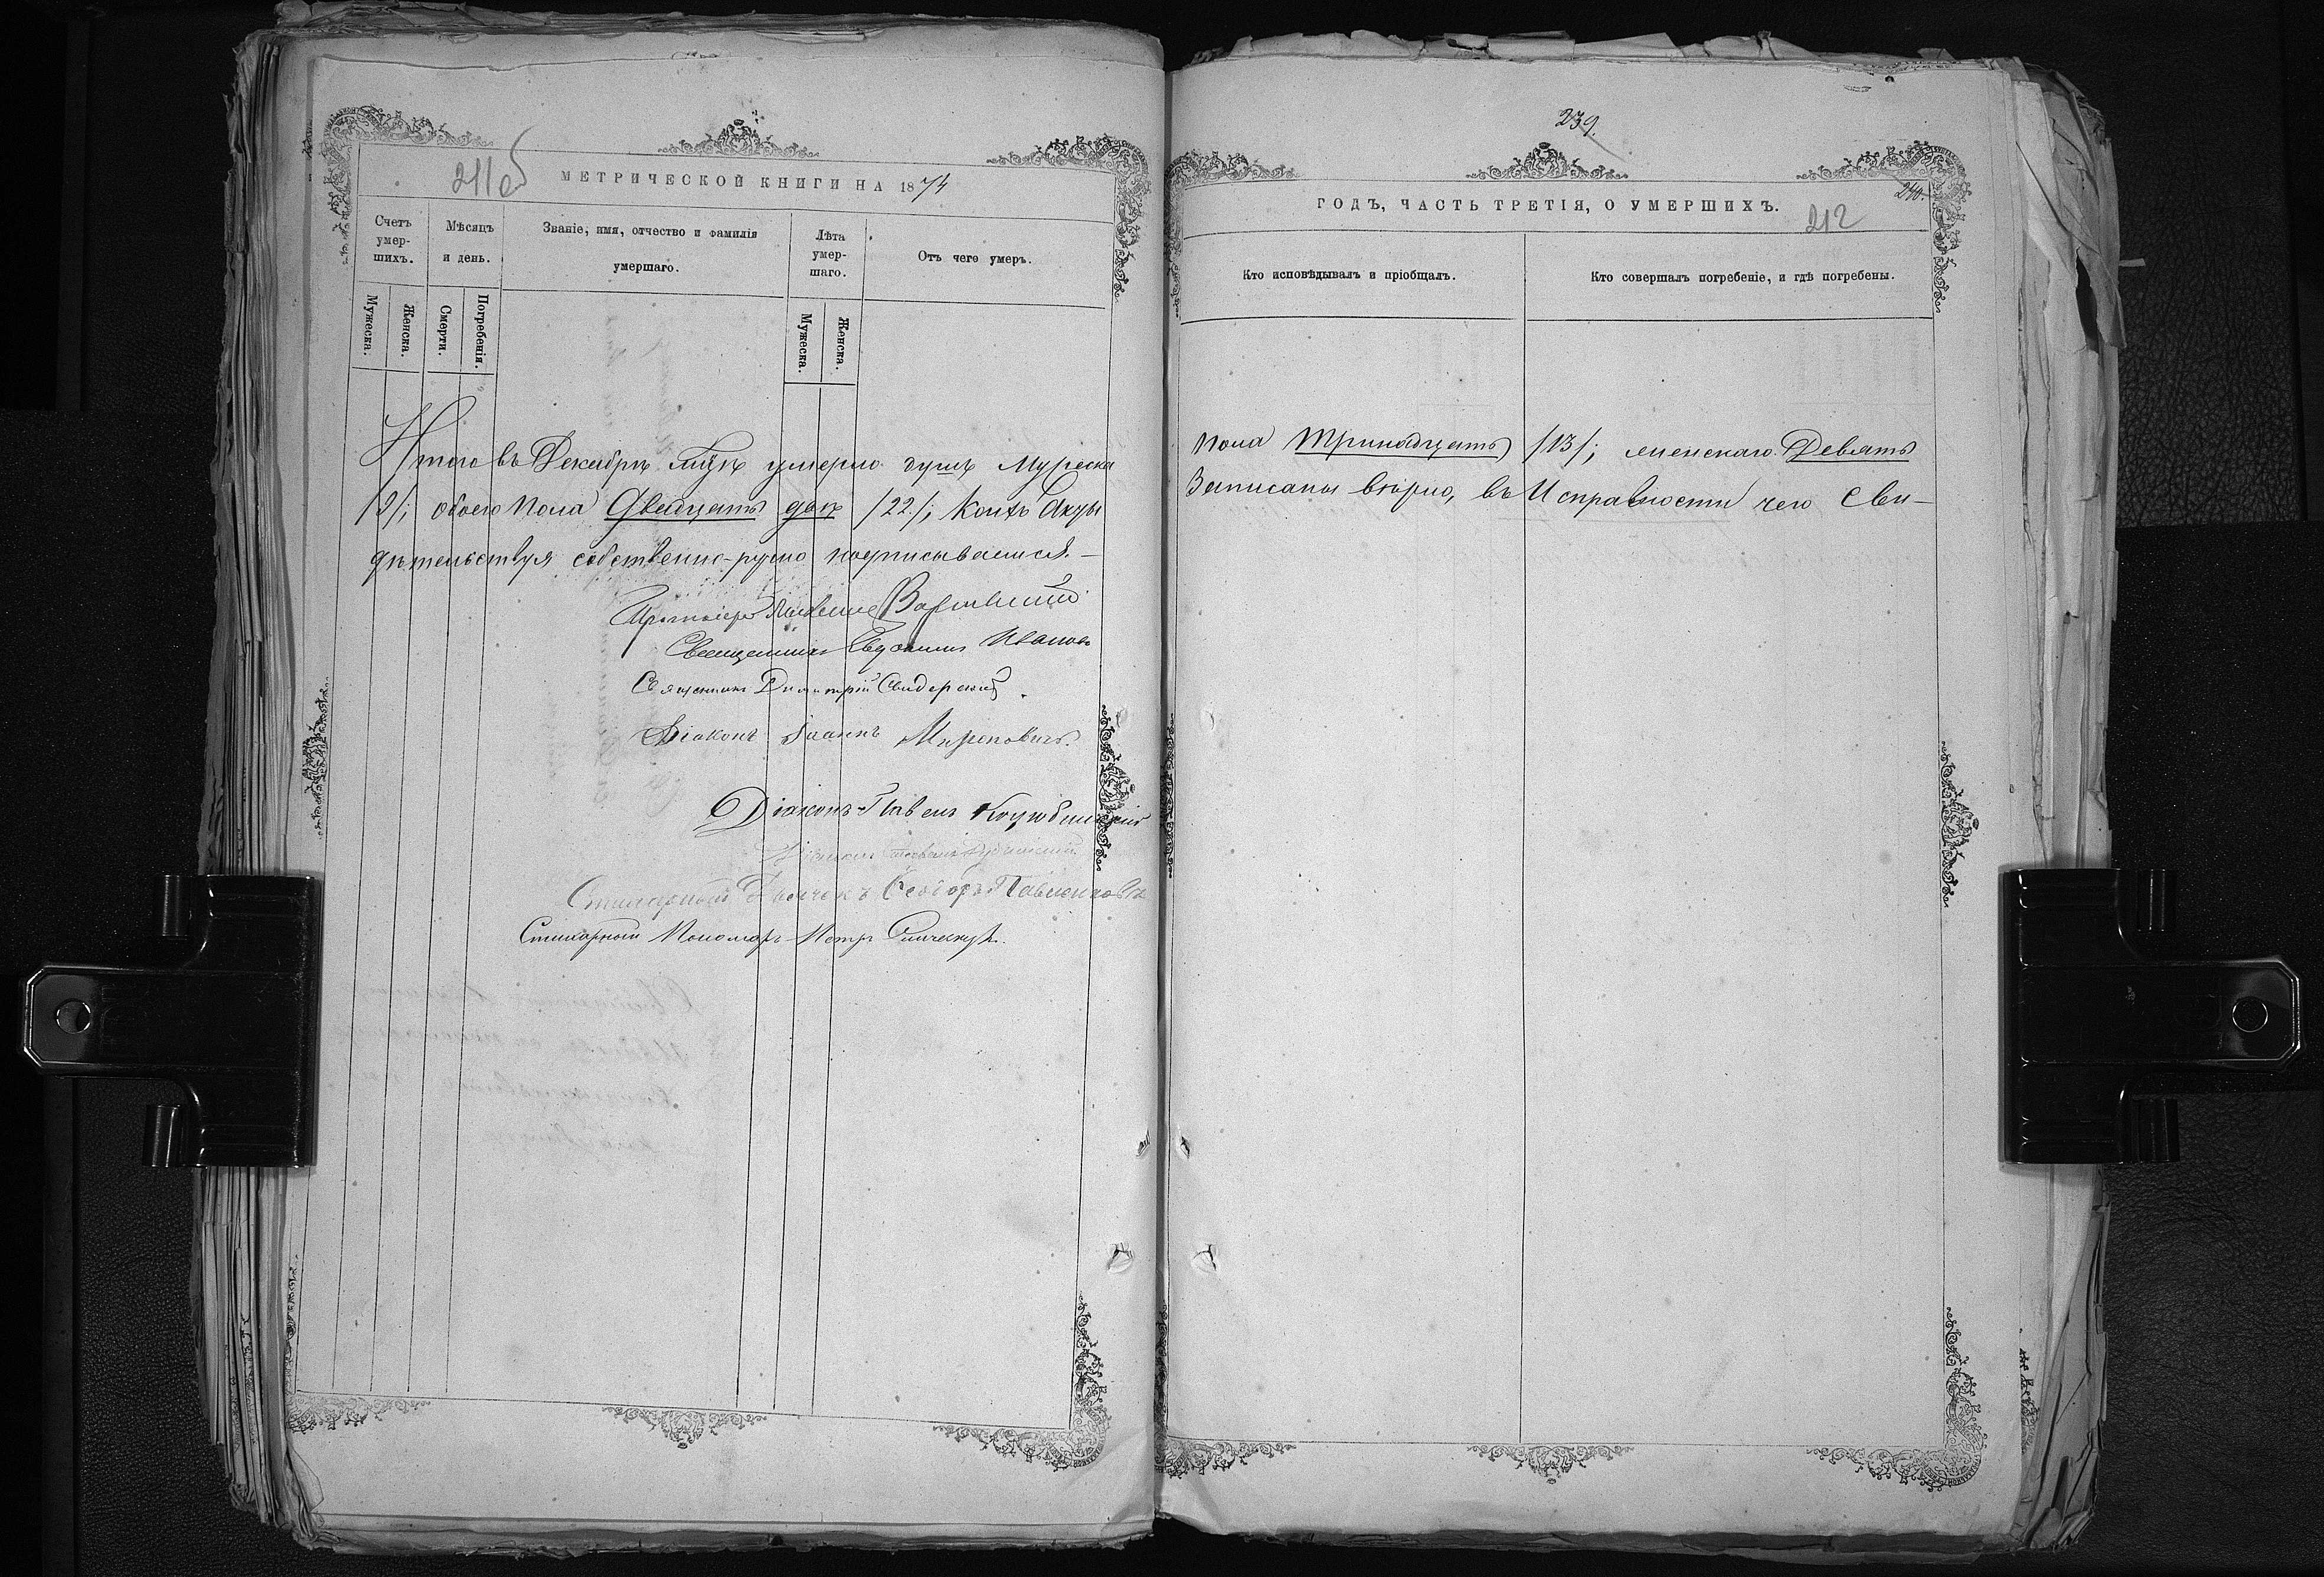 239.
240.
211 об
212
МЕТРИЧЕСКОЙ КНИГИ НА 1874
ГОДЪ, ЧАСТЬ ТРЕТІЯ, О УМЕРШИХЪ.
Счетъ умер-шихъ.
Мужеска.
Женска.
Мѣсяцъ и день.
Смерти.
Погребенія.
Званіе, имя, отчество и фамилія умершаго.
Лѣта умер-шаго.
Мужеска.
Женска.
Отъ чего умеръ.
Кто исповѣдывалъ и пріобщалъ.
Кто совершалъ погребеніе, и гдѣ погребены.
Итого въ Декабрѣ мцѣ умерло душъ Мужеска пола тринадцать /13/; женскаго Девять
/9/; обоего пола Двадцать двѣ /22/; Коихъ Акты Записаны вѣрно, въ Исправности чего Сви-
дѣтельствуя собственно-ручно подписываемся. —
Протоіерей
Священникъ Евдокимъ Ивановъ
Священникъ Димитрій Свидерскій.
Діаконъ Іоаннъ
Діаконъ Павелъ
Діаконъ
Стихарный Дьячекъ Ѳеодоръ Павленковъ
Стихарный Пономарь Петръ